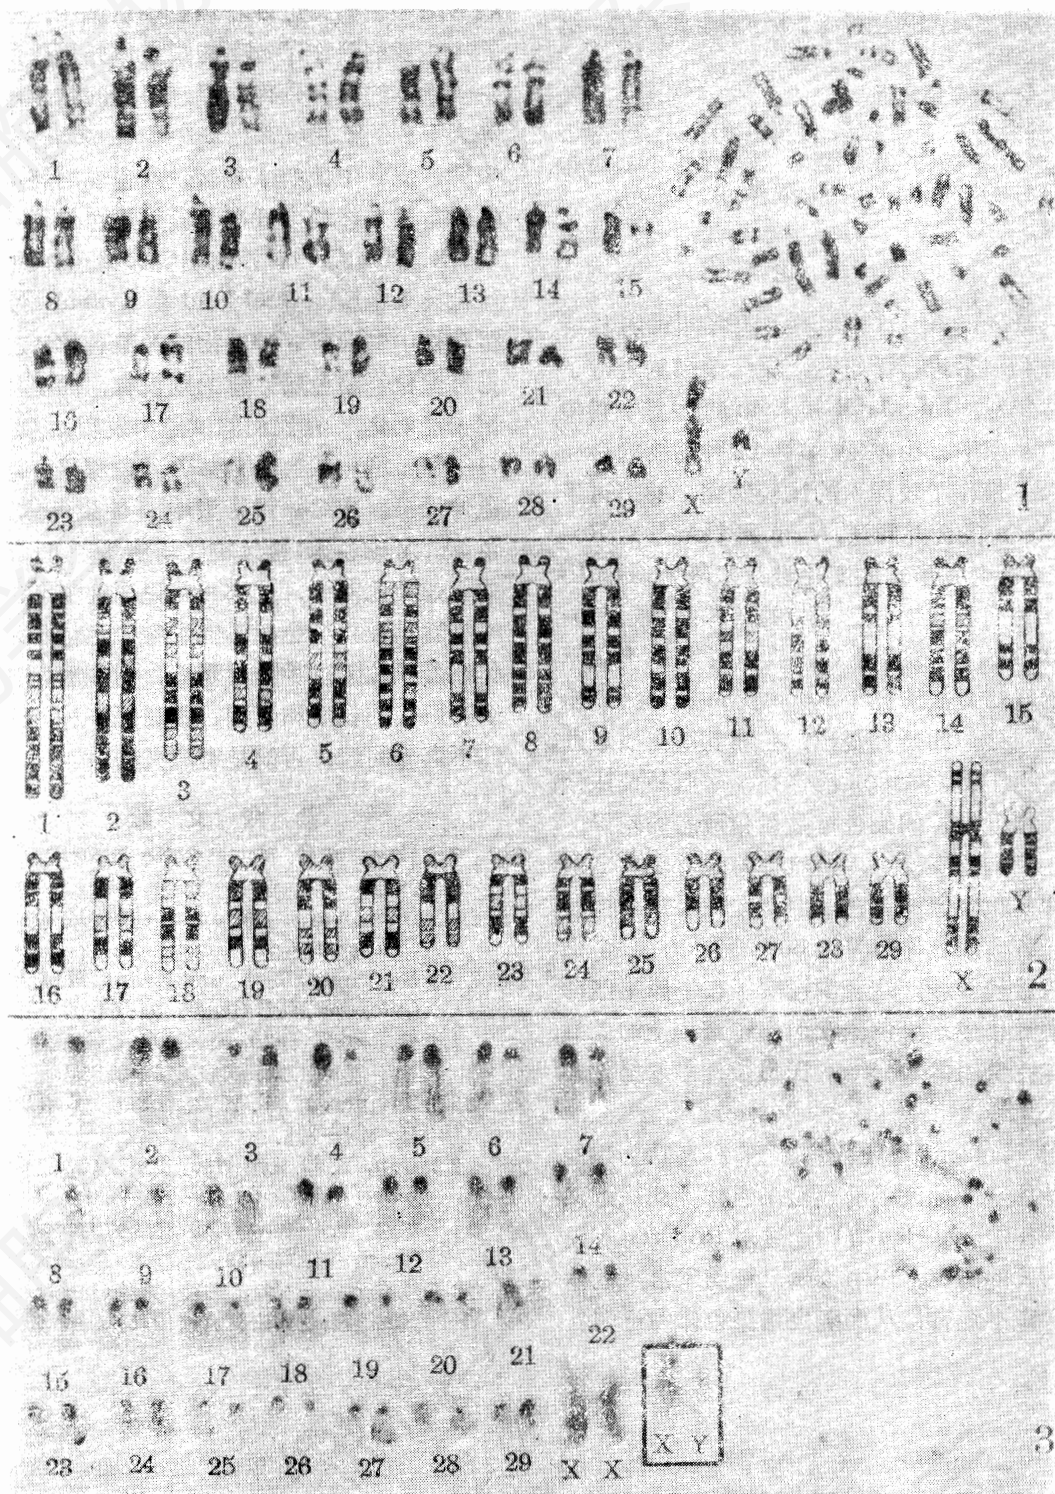 1 2 3 4 5 6 7
8 9 10 11 12 13 14 15
16 17 18 19 20 21 22
X Y
23 24 25 26 27 28 29
1
1 2 3 4 5 6 7 8 9 10 11 12 13 14 15
16 17 18 19 20 21 22 23 24 25 26 27 28 29 X Y
2
1 2 3 4 5 6 7
8 9 10 11 12 13 14
15 16 17 18 19 20 21 22
23 24 25 26 27 28 29 X X
X Y
3